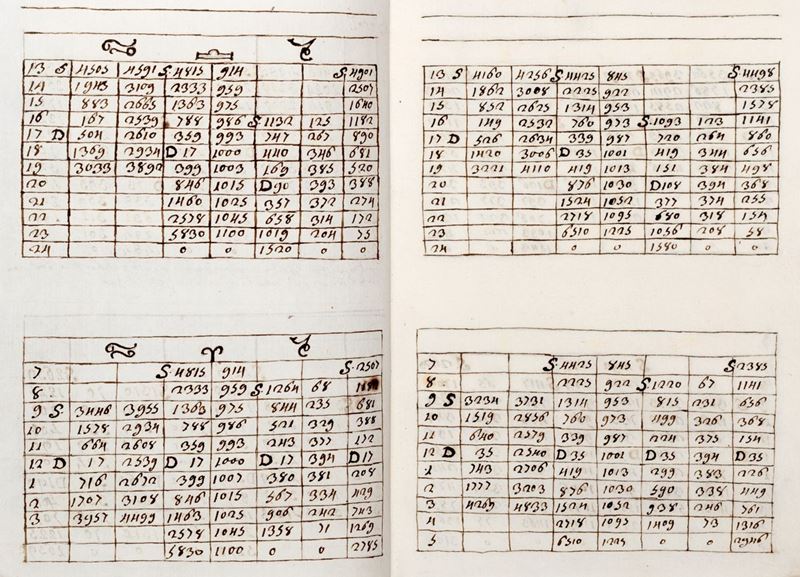 ♋ ♎ ♑
13 S 4505 4591 S 4815 914 S 4901
14 1943 3109 2333 959 2507
15 883 2665 1363 975 1640
16 167 2539 788 986 S 1132 125 1182
17 D 504 2610 359 993 747 267 890
18 1369 2934 D 17 1000 440 346 681
19 3033 3892 399 1003 169 385 520
20 846 1015 D 90 393 388
21 1460 1025 357 372 274
22 2578 1045 658 314 172
23 5830 1100 1019 204 75
24 0 0 1520 0 0
♋ ♈ ♑
7 S 4815 914 S 2507
8 2333 959 S 1264 68
9 S 3446 3955 1363 975 844 235 681
10 1578 2934 788 986 521 329 388
11 664 2608 359 993 243 377 172
12 D 17 2539 D 17 1000 D 17 394 D 17
1 716 2672 399 1007 380 381 208
2 1707 3108 846 1015 567 334 429
3 3957 4499 1463 1025 906 242 743
2578 1045 1358 71 1269
5830 1100 0 0 2785
13 S 4160 4256 S 4425 845 S 4498
14 1862 3008 2225 922 2385
15 852 2625 1314 953 1578
16 149 2532 760 973 S 1093 123 1141
17 D 526 2634 339 987 720 264 860
18 1420 3006 D 35 1001 419 344 656
19 3221 4110 419 1013 151 384 498
20 876 1030 D 108 394 368
21 1524 1052 377 374 255
22 2718 1095 680 318 154
23 6510 1225 1056 208 58
24 0 0 1580 0 0
7 S 4425 845 S 2385
8 2225 922 S 1220 67 1141
9 S 3234 3731 1314 953 815 231 656
10 1519 2856 760 973 499 326 368
11 640 2579 339 987 224 375 154
12 D 35 2540 D 35 1001 D 35 394 D 35
1 743 2706 419 1013 299 383 226
2 1777 3203 876 1030 590 338 449
3 4269 4833 1524 1052 938 246 761
4 2718 1095 1409 73 1316
5 6510 1225 0 0 2946